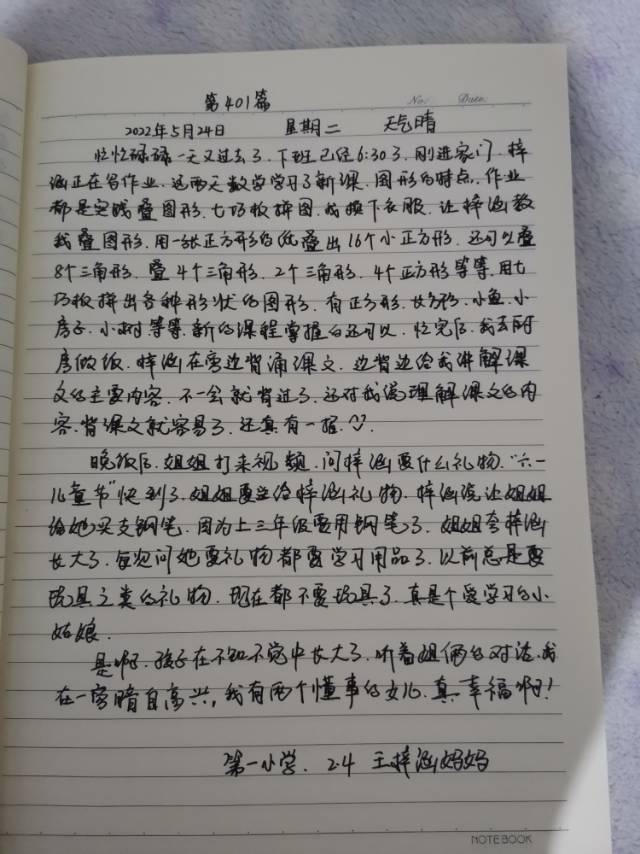 第401篇
No. Date.
2022年5月24日 星期二 天气晴
忙忙碌碌一天又过去了.下班已经6:30了.刚进家门.梓
涵正在写作业.这两天数学学习了新课.图形的特点.作业
都是实践叠图形.七巧板拼图.我换下衣服.让梓涵教
我叠图形.用一张正方形的纸叠出16个小正方形.还可以叠
8个三角形.叠4个三角形.2个三角形.4个正方形等等.用七
巧板拼出各种形状的图形.有正方形.长方形.小鱼.小
房子.小树等等.新的课程掌握的还可以.忙完后.我去厨
房做饭.梓涵在旁边背诵课文.边背边给我讲解课
文的主要内容.不一会就背过了.还对我说理解课文的内
容.背课文就容易了.还真有一握.
晚饭后.姐姐打来视频.问梓涵要什么礼物."六一
儿童节"快到了.姐姐要送给梓涵礼物.梓涵说.让姐姐
给她买支钢笔.因为上三年级要用钢笔了.姐姐夸梓涵
长大了.每次问她要礼物都要学习用品了.以前总是要
玩具之类的礼物.现在都不要玩具了.真是个爱学习的小
姑娘.
是啊.孩子在不知不觉中长大了.听着姐俩的对话.我
在一旁暗自高兴,我有两个懂事的女儿.真幸福啊!
第一小学.2.4 王梓涵妈妈
NOTEBOOK